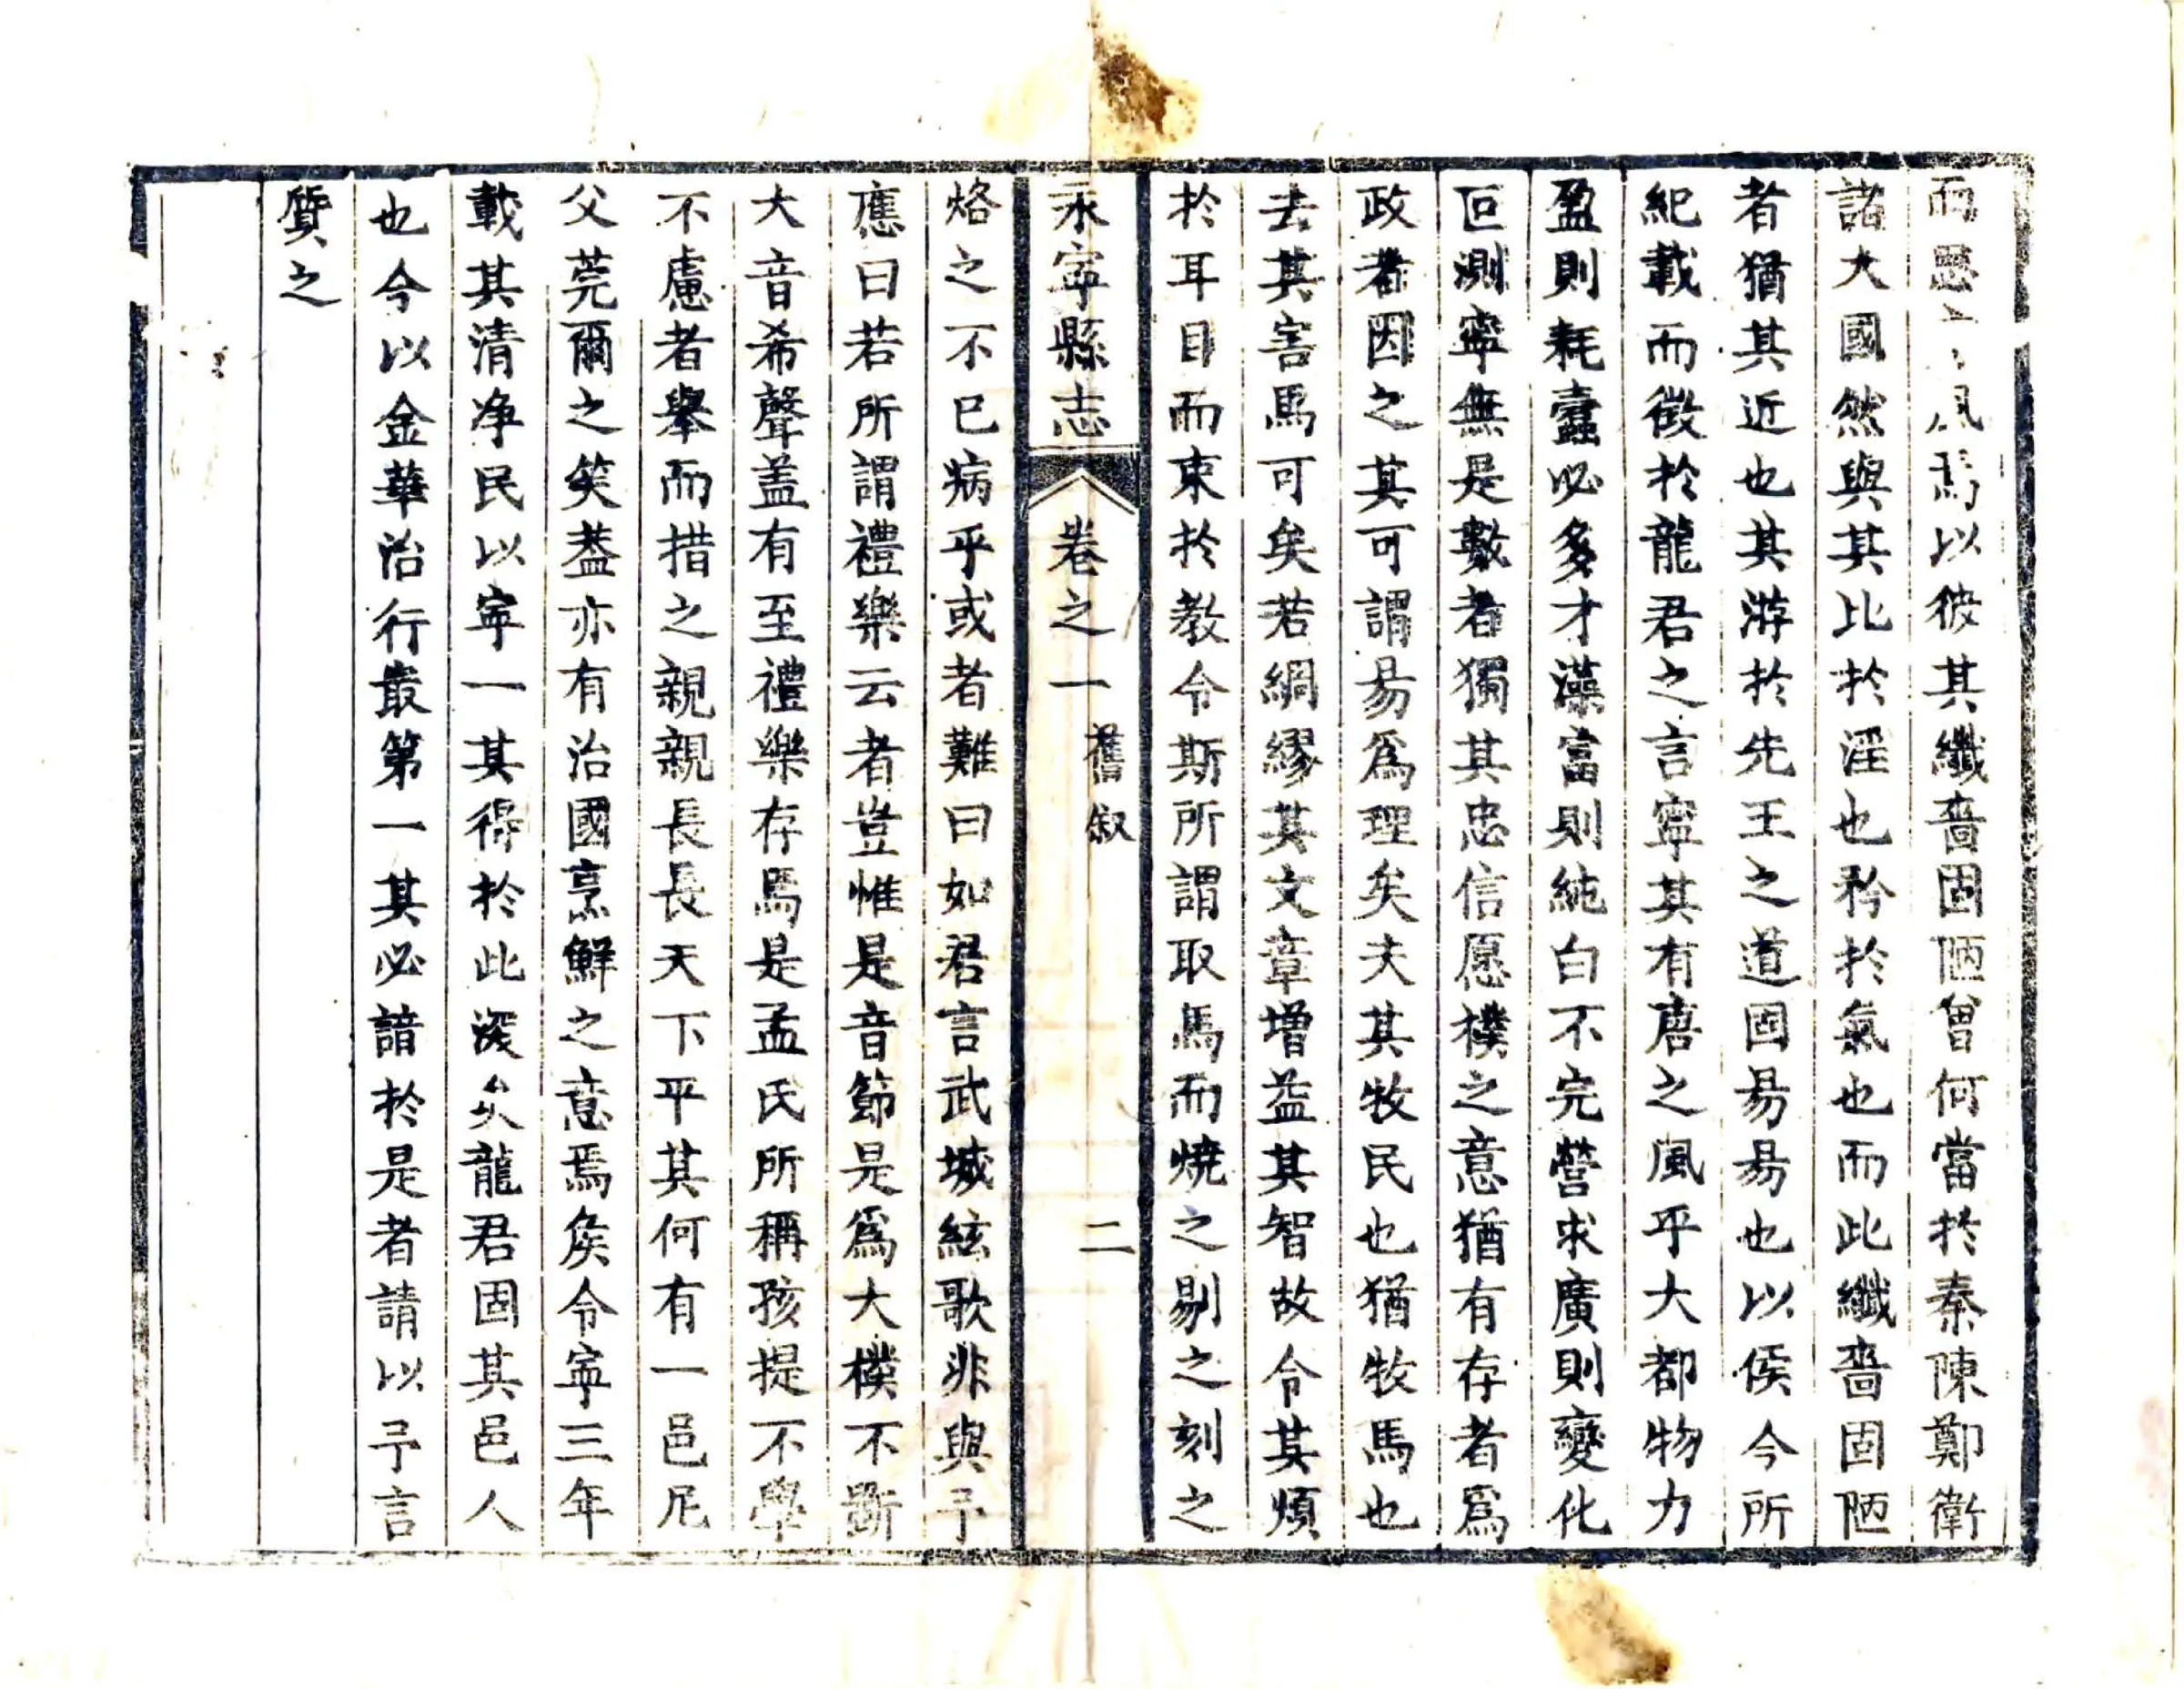 而思風焉以彼其纖嗇固陋曾何當於秦陳鄭衛
諸大國然與其比於淫也矜於氣也而此纖嗇固陋
者猶其近也其游於先王之道固易易也以侯今所
紀載而徵於龍君之言寧其有唐之風乎大都物力
盈則耗蠹必多才藻富則純白不完營求廣則變化
叵測寧無是數者獨其忠信愿樸之意猶有存者爲
政者因之其可謂易爲理矣夫其牧民也猶牧馬也
去其害馬可矣若綢繆其文章增益其智故令其煩
於耳目而束於教令斯所謂取馬而燒之剔之刻之
永寧縣志 卷之一 舊叙 二
烙之不已病乎或者難曰如君言武城絃歌非與予
應曰若所謂禮樂云者豈惟是音節是爲大樸不斲
大音希聲盖有至禮樂存焉是孟氏所稱孩提不學
不慮者舉而措之親親長長天下平其何有一邑尼
父莞爾之笑葢亦有治國烹鮮之意焉矦令寧三年
載其清净民以寧一其得於此深矣龍君固其邑人
也今以金華治行最第一其必諳於是者請以予言
質之